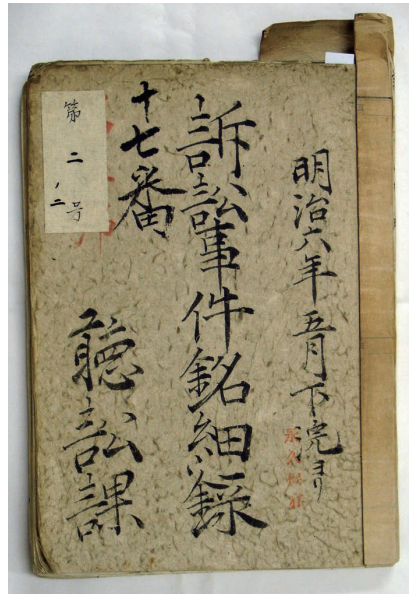 明治六年五月下浣ヨリ
訴訟事件銘細録
十七番
聴訟課
第二ノ二号